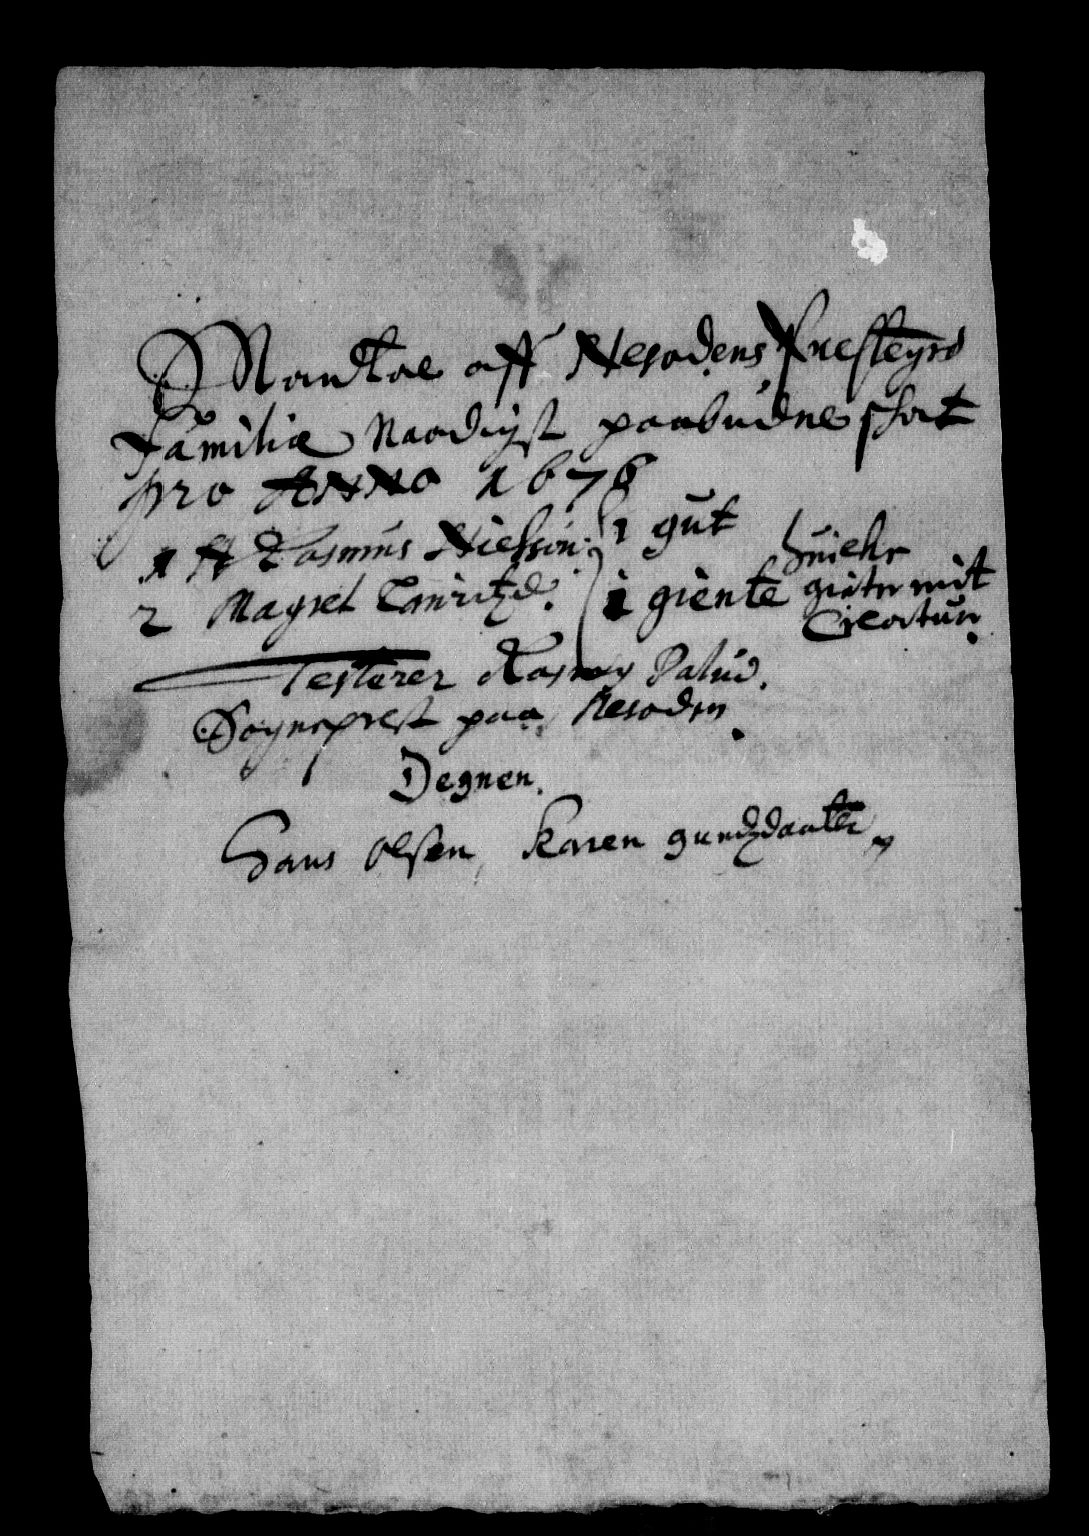 Mandtae aff Nesodens Presteg:rd
Familiæ Naadigst paabudne schat
pro ANNO 1678
1 H Rasmus Nielssøn. 1 gut
2 Magret Lauritzd. 1 giente
huicke
giør mit
Creatur.
Testerer Rasmus Palud.
Sogneprest paa Nesoden.
Degnen.
Hans Olsen, Karen gundzdaatter